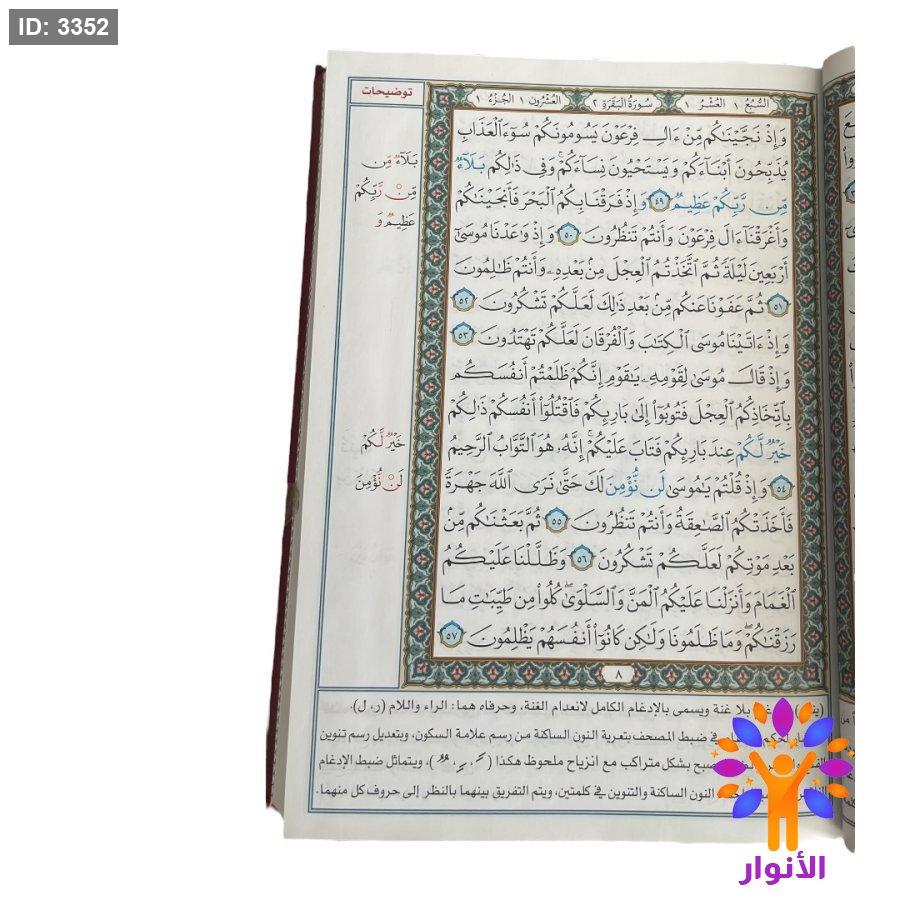 ID: 3352
توضيحات
السُّبُع ١ العُشْر ١ سُورَةُ البَقَرَةِ ٢ العُشْرُون ١ الجُزْء ١
وَإِذْ نَجَّيْنَٰكُم مِّنْ ءَالِ فِرْعَوْنَ يَسُومُونَكُمْ سُوٓءَ ٱلْعَذَابِ
يُذَبِّحُونَ أَبْنَآءَكُمْ وَيَسْتَحْيُونَ نِسَآءَكُمْ ۚ وَفِى ذَٰلِكُم بَلَآءٌ
مِّن رَّبِّكُمْ عَظِيمٌ ٤٩ وَإِذْ فَرَقْنَا بِكُمُ ٱلْبَحْرَ فَأَنجَيْنَٰكُمْ
وَأَغْرَقْنَآ ءَالَ فِرْعَوْنَ وَأَنتُمْ تَنظُرُونَ ٥٠ وَإِذْ وَٰعَدْنَا مُوسَىٰٓ
أَرْبَعِينَ لَيْلَةً ثُمَّ ٱتَّخَذْتُمُ ٱلْعِجْلَ مِنۢ بَعْدِهِۦ وَأَنتُمْ ظَٰلِمُونَ
٥١ ثُمَّ عَفَوْنَا عَنكُم مِّنۢ بَعْدِ ذَٰلِكَ لَعَلَّكُمْ تَشْكُرُونَ ٥٢
وَإِذْ ءَاتَيْنَا مُوسَى ٱلْكِتَٰبَ وَٱلْفُرْقَانَ لَعَلَّكُمْ تَهْتَدُونَ ٥٣
وَإِذْ قَالَ مُوسَىٰ لِقَوْمِهِۦ يَٰقَوْمِ إِنَّكُمْ ظَلَمْتُمْ أَنفُسَكُم
بِٱتِّخَاذِكُمُ ٱلْعِجْلَ فَتُوبُوٓا۟ إِلَىٰ بَارِئِكُمْ فَٱقْتُلُوٓا۟ أَنفُسَكُمْ ذَٰلِكُمْ
خَيْرٌ لَّكُمْ عِندَ بَارِئِكُمْ فَتَابَ عَلَيْكُمْ ۚ إِنَّهُۥ هُوَ ٱلتَّوَّابُ ٱلرَّحِيمُ
٥٤ وَإِذْ قُلْتُمْ يَٰمُوسَىٰ لَن نُّؤْمِنَ لَكَ حَتَّىٰ نَرَى ٱللَّهَ جَهْرَةً
فَأَخَذَتْكُمُ ٱلصَّٰعِقَةُ وَأَنتُمْ تَنظُرُونَ ٥٥ ثُمَّ بَعَثْنَٰكُم مِّنۢ
بَعْدِ مَوْتِكُمْ لَعَلَّكُمْ تَشْكُرُونَ ٥٦ وَظَلَّلْنَا عَلَيْكُمُ
ٱلْغَمَامَ وَأَنزَلْنَا عَلَيْكُمُ ٱلْمَنَّ وَٱلسَّلْوَىٰ ۖ كُلُوا۟ مِن طَيِّبَٰتِ مَا
رَزَقْنَٰكُمْ ۖ وَمَا ظَلَمُونَا وَلَٰكِن كَانُوٓا۟ أَنفُسَهُمْ يَظْلِمُونَ ٥٧
٨
بَلَآءٌ مِّن
مِّن رَّبِّكُمْ
عَظِيمٌ وَ
خَيْرٌ لَّكُمْ
لَن نُّؤْمِنَ
بلا غنة ويسمى بالإدغام الكامل لانعدام الغنة، وحرفاه هما: الراء واللام (ر، ل).
في ضبط المصحف بتعرية النون الساكنة من رسم علامة السكون، وبتعديل رسم تنوين
بشكل متراكب مع انزياح ملحوظ هكذا ( ــً، ــٍ، ــٌ )، ويتماثل ضبط الإدغام
النون الساكنة والتنوين في كلمتين، ويتم التفريق بينهما بالنظر إلى حروف كل منهما.
الأنوار